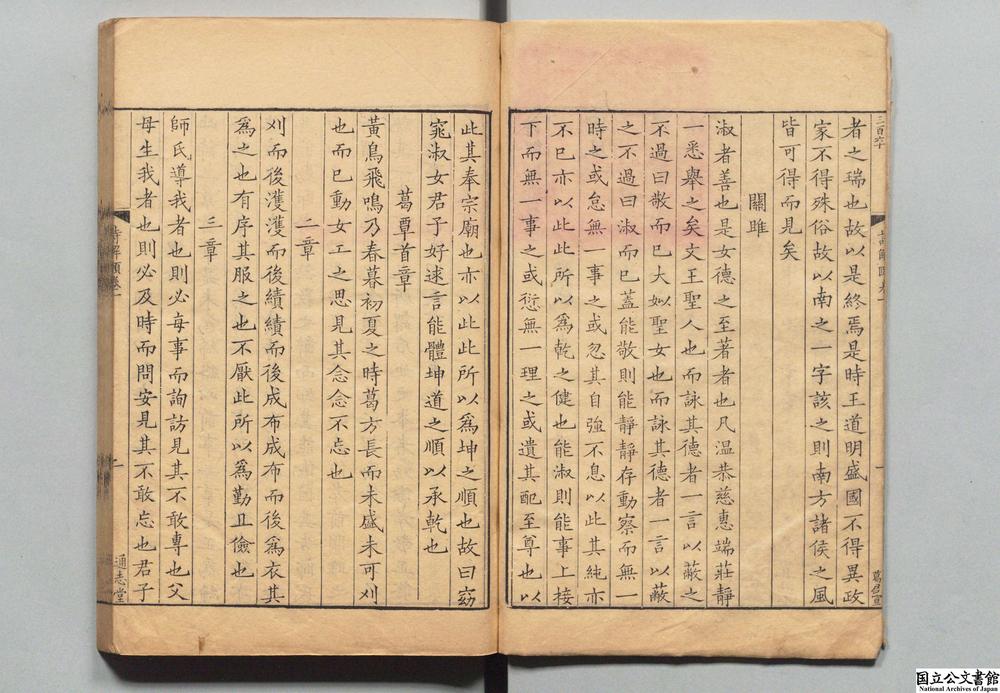 者之瑞也故以是終焉是時王道明盛國不得異政
家不得殊俗故以南之一字該之則南方諸侯之風
皆可得而見矣
關雎
淑者善也是女德之至著者也凡温恭慈惠端莊靜
一悉舉之矣文王聖人也而詠其德者一言以蔽之
不過曰敬而已大姒聖女也而詠其德者一言以蔽
之不過曰淑而已蓋能敬則能靜靜存動察而無一
時之或怠無一事之或忽其自強不息以此其純亦
不已亦以此此所以為乾之健也能淑則能事上接
下而無一事之或愆無一理之或遺其配至尊也以
此其奉宗廟也亦以此此所以為坤之順也故曰窈
窕淑女君子好逑言能體坤道之順以承乾也
葛覃首章
黃鳥飛鳴乃春暮初夏之時葛方長而未盛未可刈
也而已動女工之思見其念念不忘也
二章
刈而後濩濩而後績績而後成布成布而後為衣其
為之也有序其服之也不厭此所以為勤且儉也
三章
師氏導我者也則必每事而詢訪見其不敢專也父
母生我者也則必及時而問安見其不敢忘也君子
三百六十
詩解頤卷一
一
詩解頤卷一
二
通志堂
国立公文書館
National Archives of Japan